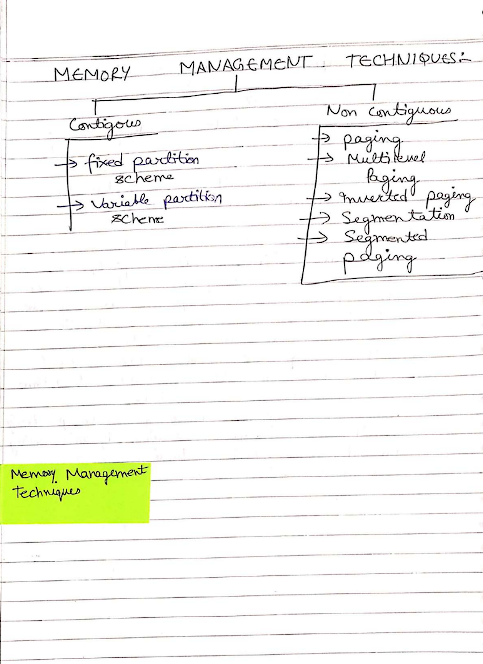 MEMORY MANAGEMENT TECHNIQUES:-
Contigous
→ fixed partition
scheme
→ Variable partition
scheme
Non Contiguous
→ paging
→ Multilevel
Paging
→ Inverted paging
→ Segmentation
→ Segmented
paging
Memory Management
Techniques